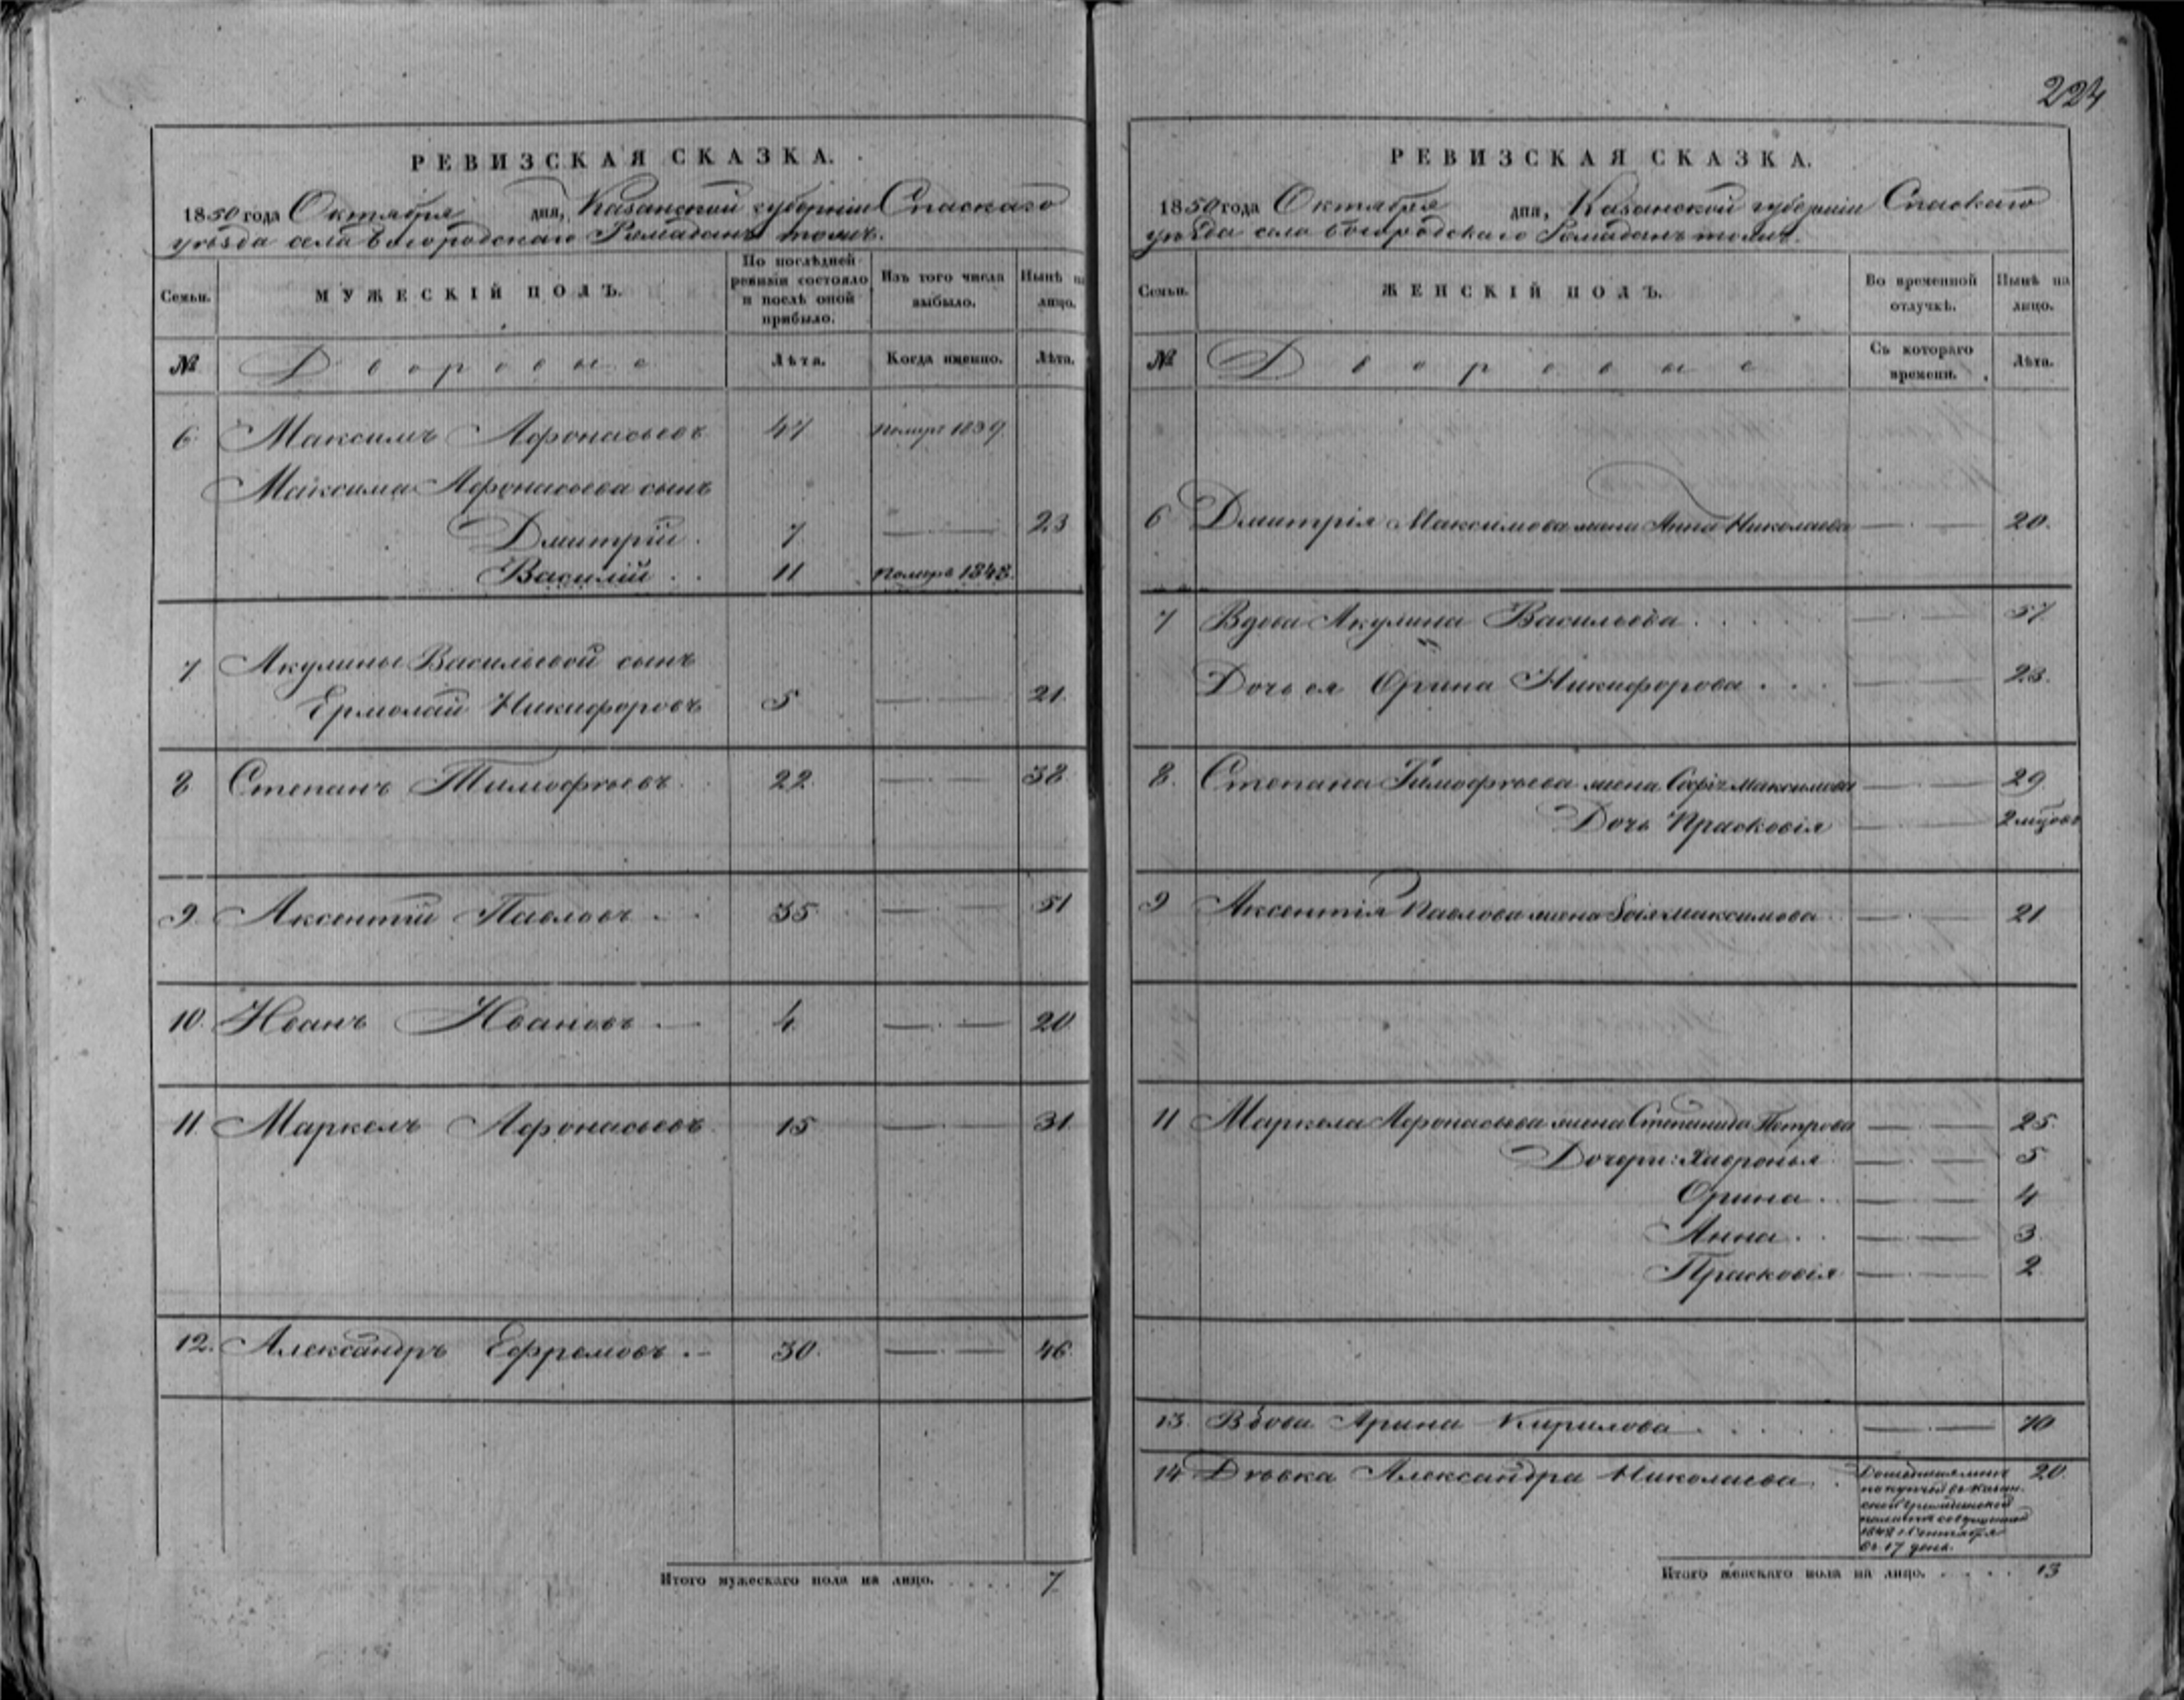 224
РЕВИЗСКАЯ СКАЗКА.
1850 года Октября дня, Казанской губерніи Спаскаго
уѣзда села Богородскаго Рамаданъ тожъ.
Семьи. МУЖЕСКІЙ ПОЛЪ. По послѣдней ревизіи состояло и послѣ оной прибыло. Изъ того числа выбыло. Нынѣ на лицо.
№ Дворовые Лѣта. Когда именно. Лѣта.
6 Максимъ Афонасьевъ 47 померъ 1839
Максима Афонасьева сынъ
Дмитрій 7 23
Василій 11 померъ 1848.
7 Акулины Васильевой сынъ
Ермолай Никифоровъ 5 21
8 Степанъ Тимофѣевъ 22 38
9. Аксентій Павловъ 35 51
10. Иванъ Ивановъ 4 20
11. Маркелъ Афонасьевъ 15 31
12. Александръ Ефремовъ 30. 46
Итого мужескаго пола на лицо. . . . . 7
РЕВИЗСКАЯ СКАЗКА.
1850 года Октября дня, Казанской губерніи Спаскаго
уѣзда села Богородскаго Рамаданъ тожъ.
Семьи. ЖЕНСКІЙ ПОЛЪ. Во временной отлучкѣ. Нынѣ на лицо.
№ Дворовые Съ котораго времени. Лѣта.
6 Дмитрія Максимова жена Анна Николаева 20.
7 Вдова Акулина Васильева 57
Дочь ея Орина Никифорова 23.
8. Степана Тимофѣева жена Софія Максимова 29
Дочь Прасковія 2 мцовъ
9 Аксентія Павлова жена Максимова 21
11 Маркела Афонасьева жена Степанида Петрова 25
Дочери: Хавронья 5
Орина 4
Анна 3
Прасковія 2
13. Вдова Арина Кирилова 70
14 Дѣвка Александра Николаева 20.
по купчей въ Казан-
ской гражданской
палатѣ совершенной
1848 Сентября
въ 17 день.
Итого женскаго пола на лицо. . . . . 13